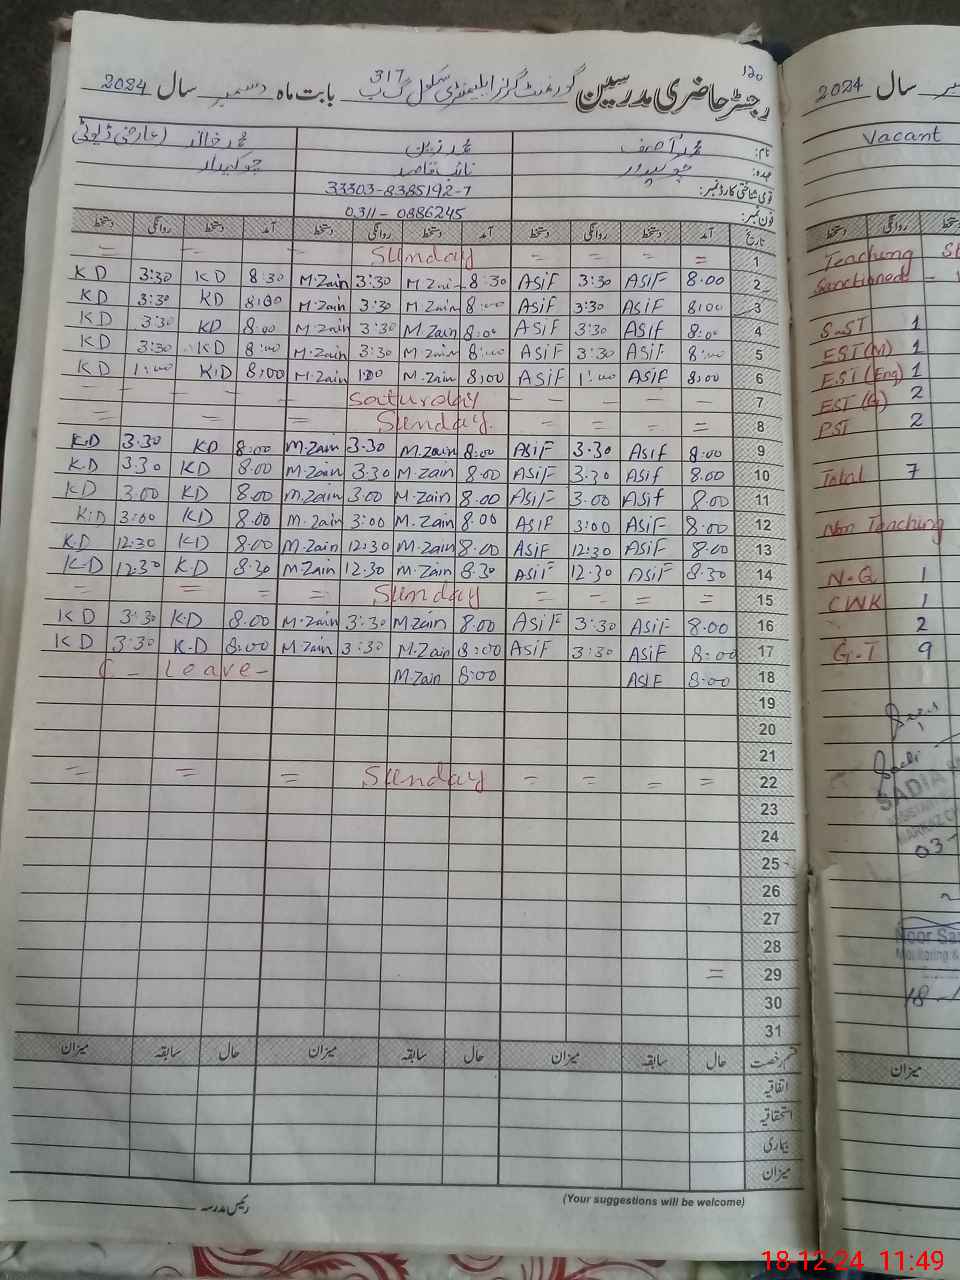 ۱۲۰
رجسٹر حاضری مدرسین گورنمنٹ گرلز ایلیمنٹری سکول 317 گ ب بابت ماہ دسمبر سال 2024
نام: محمد آصف محمد زین محمد خالد (عارضی ڈیوٹی)
عہدہ: چوکیدار نائب قاصد چوکیدار
قومی شناختی کارڈ نمبر: 33303-8385192-7
فون نمبر: 0311-0886245
تاریخ آمد دستخط روانگی دستخط آمد دستخط روانگی دستخط آمد دستخط روانگی دستخط
= - - Sunday = = = = 1
KD 3:30 KD 8:30 M.Zain 3:30 M.Zain 8:30 ASiF 3:30 ASiF 8.00 2
KD 3:30 KD 8:00 M.Zain 3:30 M.Zain 8:00 ASiF 3:30 ASiF 8:00 3
KD 3:30 KD 8:00 M.Zain 3:30 M.Zain 8:00 ASiF 3:30 ASif 8:00 4
KD 3:30 KD 8:00 M.Zain 3:30 M.Zain 8:00 ASiF 3:30 ASiF 8:00 5
KD 1:00 K.D 8:00 M.Zain 1:00 M.Zain 8:00 ASiF 1:00 ASiF 8:00 6
- - - - - Saturday - - - - 7
= = = = Sunday. = = = = 8
K.D 3.30 KD 8:00 M.Zain 3.30 M.Zain 8:00 ASiF 3.30 ASif 8:00 9
K.D 3.30 KD 8.00 M.Zain 3.30 M.Zain 8.00 ASiF 3.30 ASif 8.00 10
KD 3.00 KD 8.00 M.Zain 3.00 M.Zain 8.00 ASiF 3.00 ASif 8.00 11
K.D 3:00 KD 8.00 M.Zain 3:00 M.Zain 8.00 ASiF 3:00 ASiF 8:00 12
K.D 12:30 KD 8.00 M.Zain 12:30 M.Zain 8.00 ASiF 12:30 ASiF 8.00 13
K-D 12:30 K.D 8:30 M.Zain 12.30 M.Zain 8.30 ASiF 12.30 ASiF 8.30 14
= = = = Sunday = = = = 15
KD 3:30 K.D 8.00 M.Zain 3:30 M.Zain 8.00 ASiF 3:30 ASiF 8.00 16
KD 3:30 K.D 8:00 M.Zain 3:30 M.Zain 8:00 ASiF 3:30 ASiF 8:00 17
C - Leave - M.Zain 8:00 ASiF 8:00 18
19
20
21
= = = Sunday = = = = 22
23
24
25
26
27
28
= 29
30
31
قسم رخصت حال سابقہ میزان حال سابقہ میزان حال سابقہ میزان
اتفاقیہ
استحقاقیہ
بیماری
میزان
رئیس مدرسہ
(Your suggestions will be welcome)
سال 2024
Vacant
روانگی دستخط
Teaching
Sanctioned -
S-ST 1
EST (M) 1
EST (Eng) 1
EST (G) 2
PST 2
Total 7
Non Teaching
N-Q 1
CWK 1
2
G.T 9
SADIA
03-
Noor
Monitoring &
18-
میزان
18-12-24 11:49